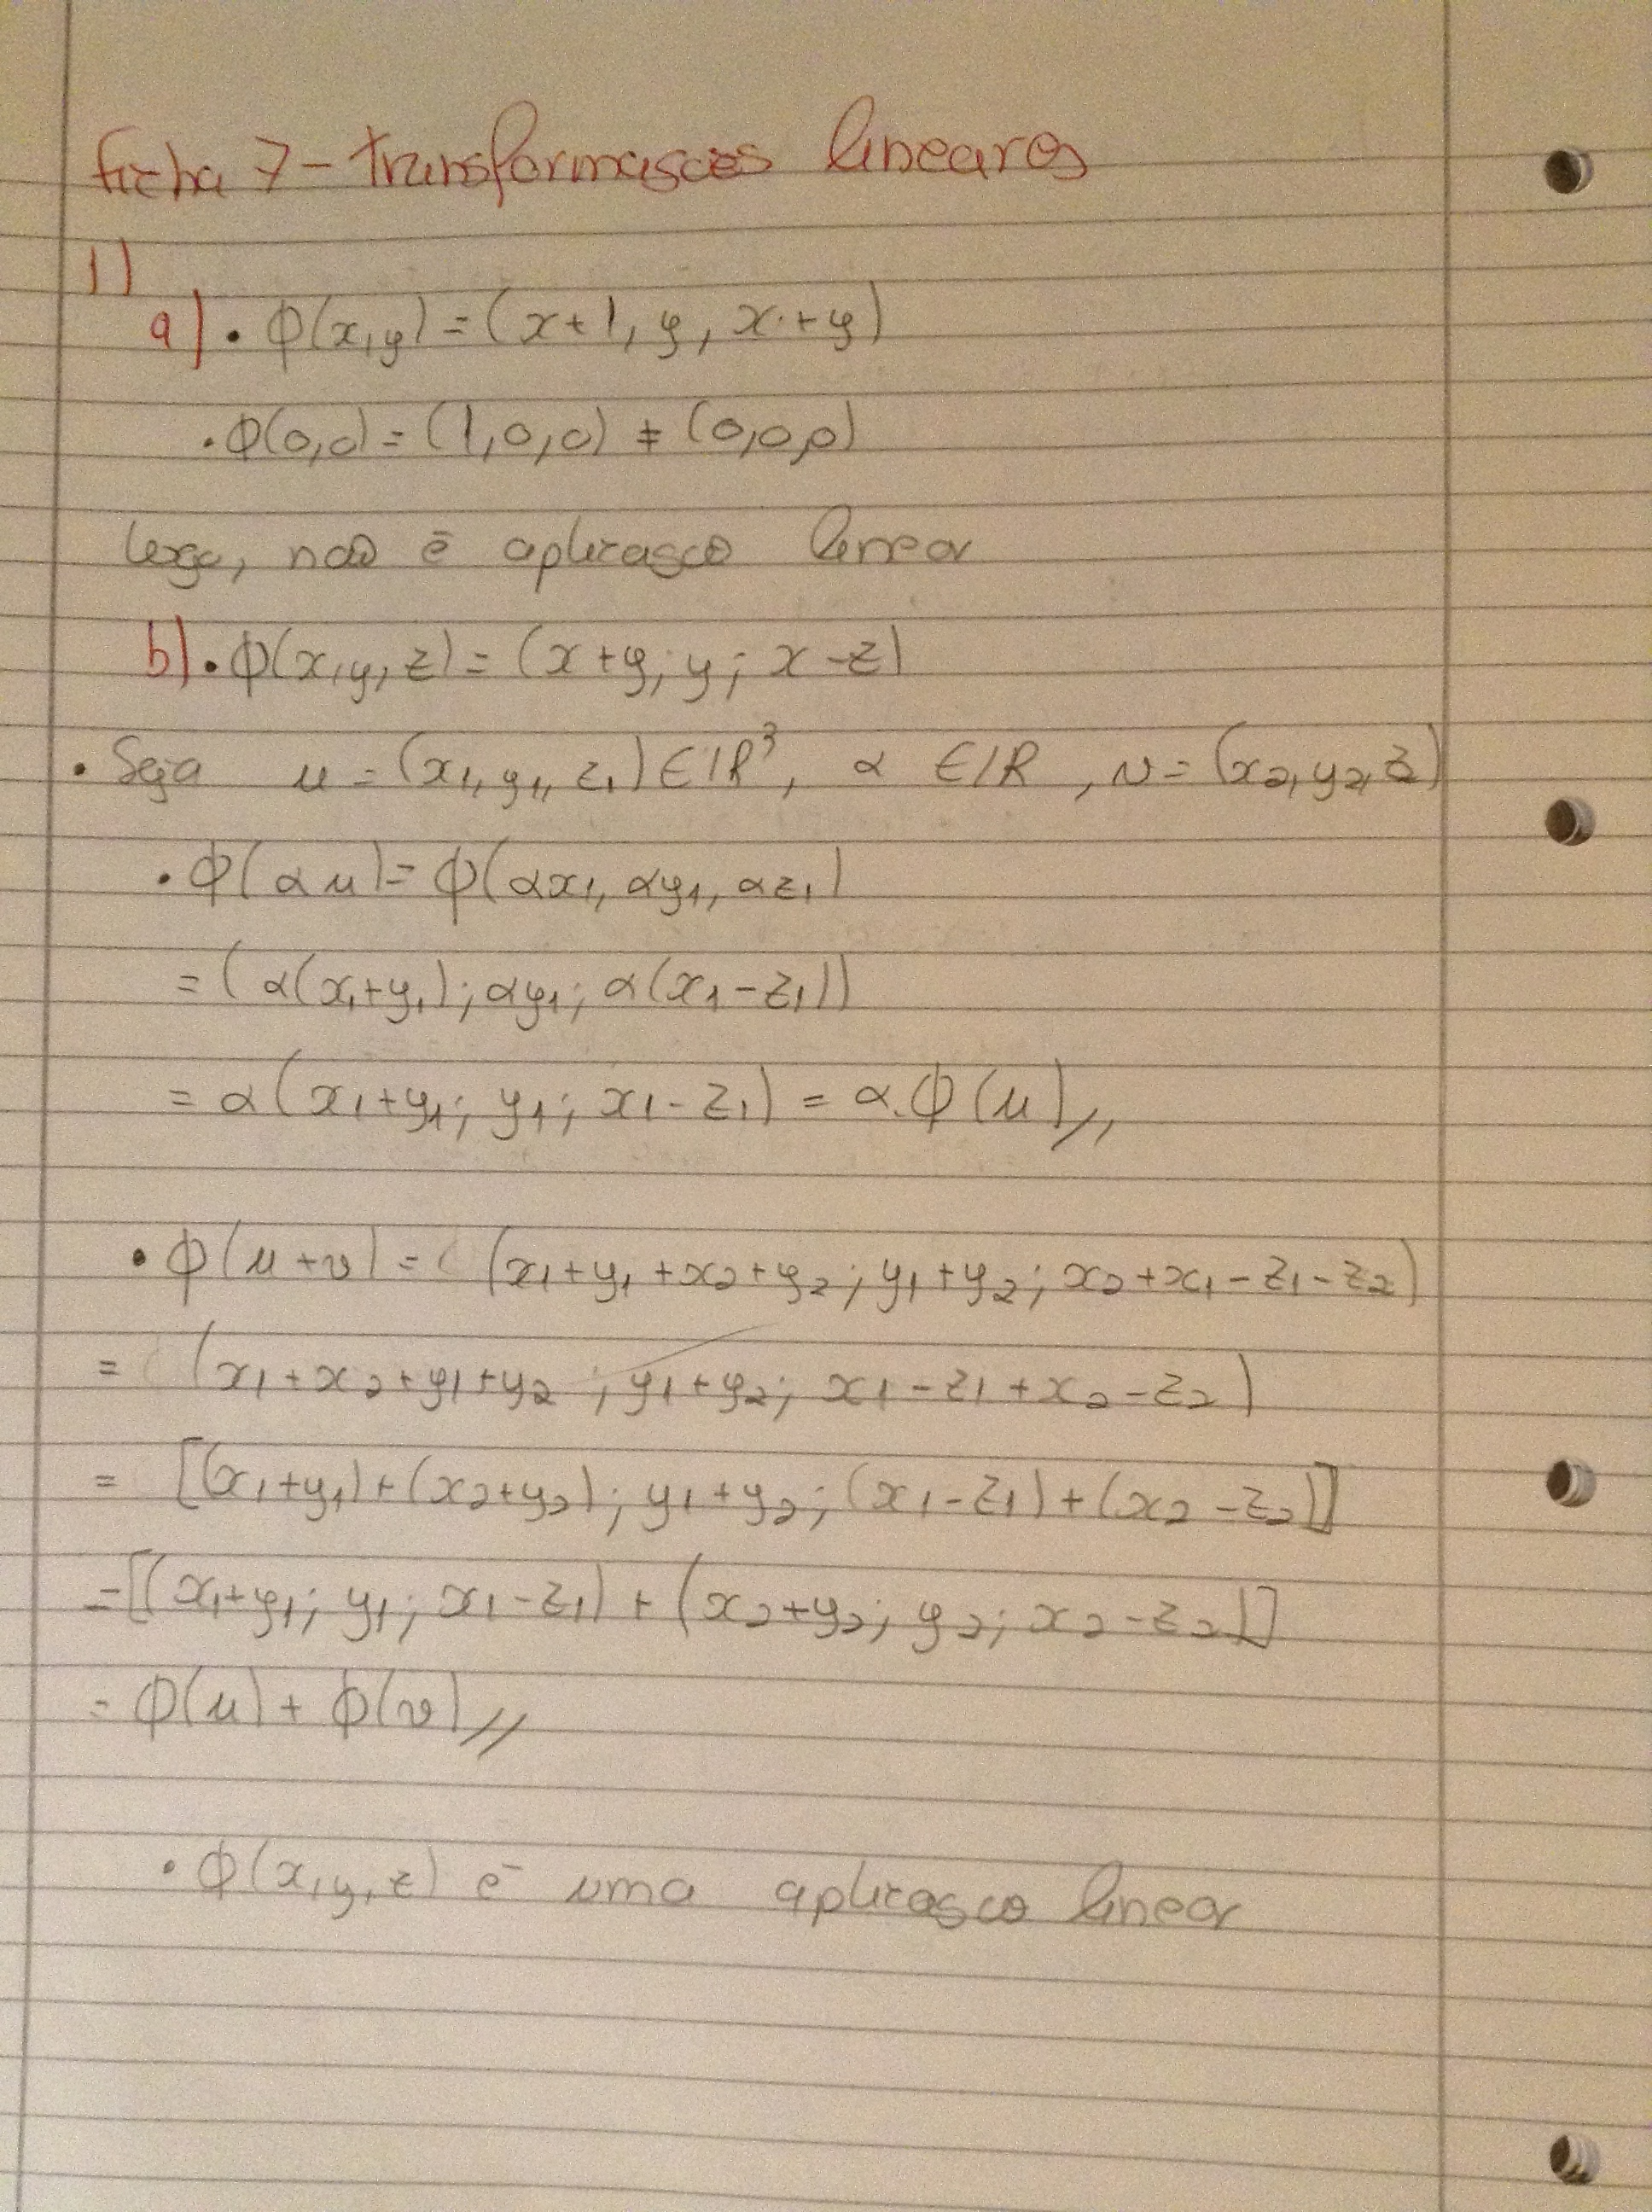 ficha 7 - transformasções lineares
1)
a) • ϕ(x,y) = (x+1, y, x+y)
• ϕ(0,0) = (1,0,0) ≠ (0,0,0)
logo, não é aplicasção linear
b) • ϕ(x,y,z) = (x+y; y; x-z)
• Seja u = (x₁,y₁,z₁) ∈ IR³, α ∈ IR, v = (x₂,y₂,z₂)
• ϕ(αu) = ϕ(αx₁, αy₁, αz₁)
= (α(x₁+y₁); αy₁; α(x₁-z₁))
= α(x₁+y₁; y₁; x₁-z₁) = α.ϕ(u)//
• ϕ(u+v) = (x₁+y₁+x₂+y₂; y₁+y₂; x₂+x₁-z₁-z₂)
= (x₁+x₂+y₁+y₂; y₁+y₂; x₁-z₁+x₂-z₂)
= [(x₁+y₁)+(x₂+y₂); y₁+y₂; (x₁-z₁)+(x₂-z₂)]
= [(x₁+y₁; y₁; x₁-z₁) + (x₂+y₂; y₂; x₂-z₂)]
= ϕ(u) + ϕ(v)//
• ϕ(x,y,z) é uma aplicasção linear